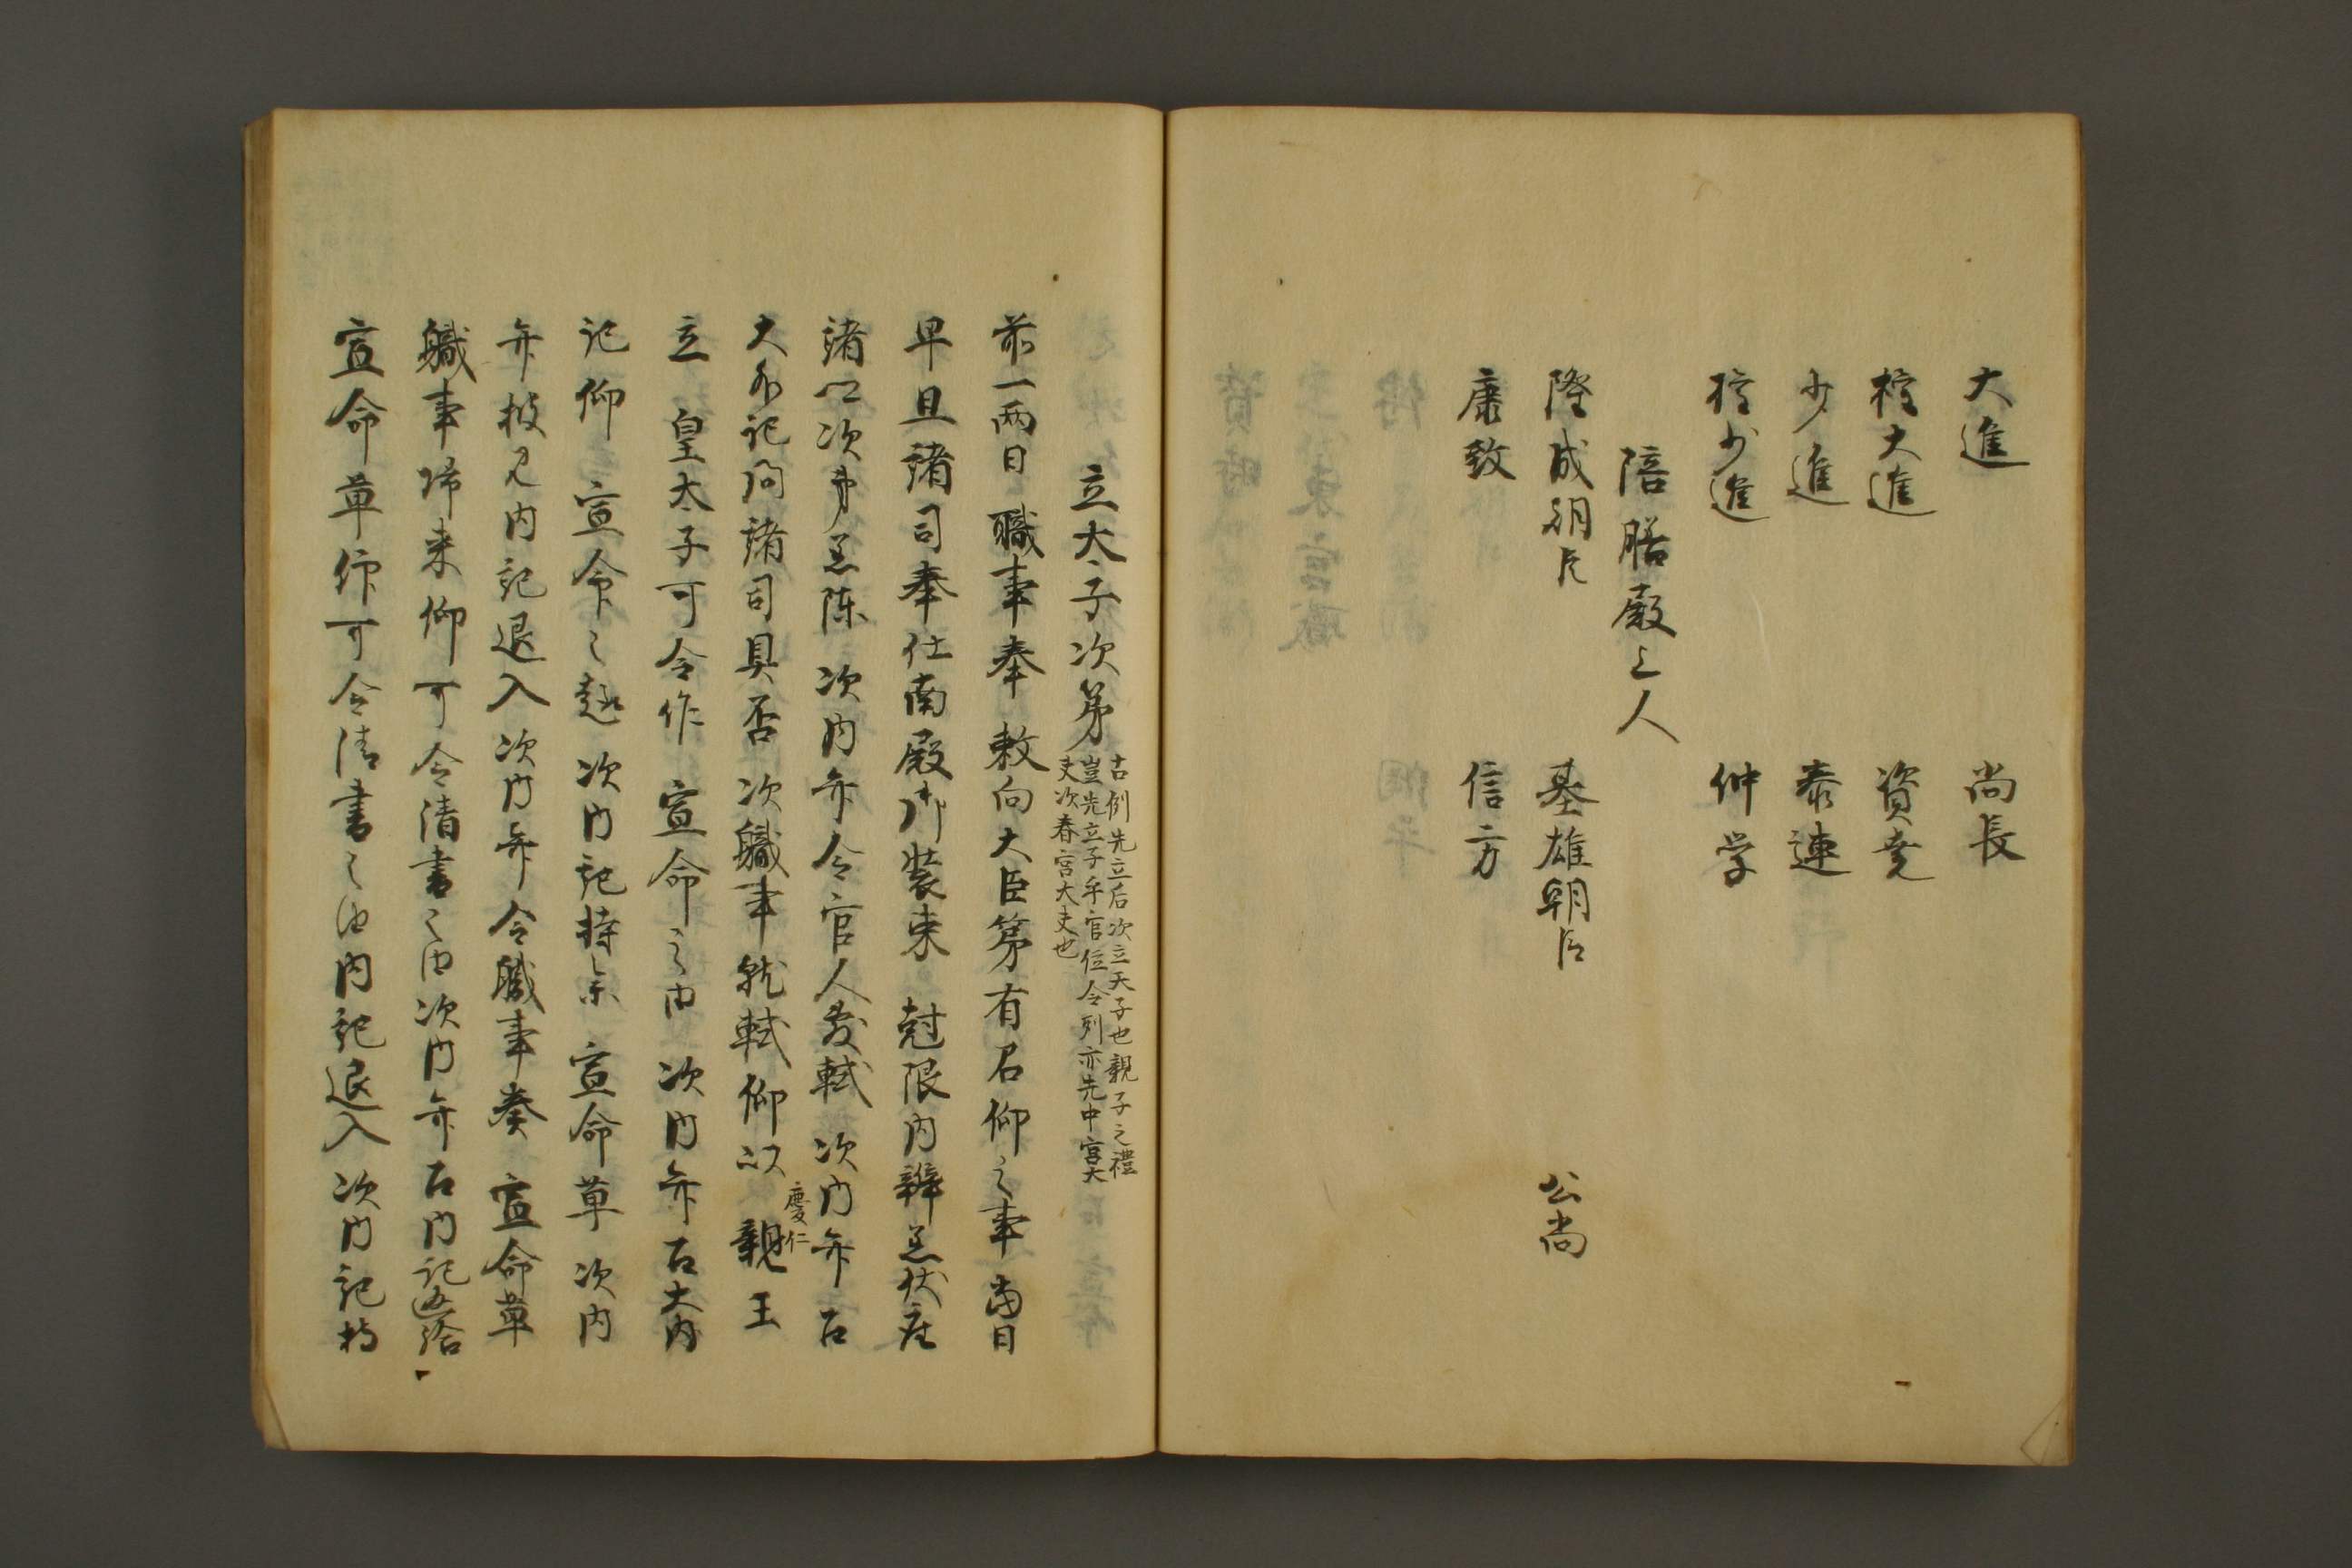 大進 尚長
権大進 資堯
少進 泰連
権少進 仲学
陪膳殿上人
隆成朝臣 基雄朝臣 公尚
康致 信方
立太子次第
古例先立后次立天子也親子之禮
豈先立子乎官位令列亦先中宮大
夫次春宮大夫也
前一両日職事奉 敕向大臣第有召仰之事当日
早旦諸司奉仕南殿御装束 尅限内辨着仗座
諸卿次第着陣 次内弁令官人敷軾 次内弁召
大外記問諸司具否 次職事就軾仰以 親王
慶仁
立 皇太子可令作 宣命之由 次内弁召大内
記仰 宣命之趣 次内記持参 宣命草 次内
弁披見内記退入次内弁令職事奏 宣命草
職事帰来仰可令清書之由次内弁召内記返給
宣命草仰可令清書之由内記退入次内記持